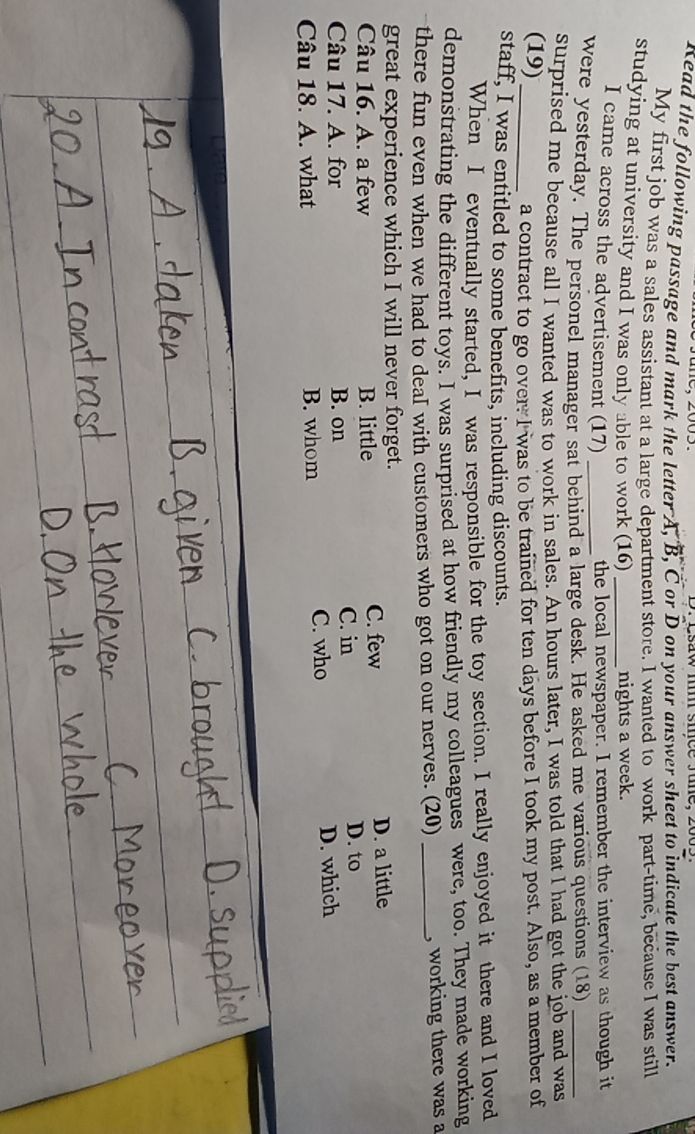 Read the following passage and mark the letter A, B, C or D on your answer sheet to indicate the best answer.
My first job was a sales assistant at a large department store. I wanted to work part-time, because I was still
studying at university and I was only able to work (16) ______ nights a week.
I came across the advertisement (17) ______ the local newspaper. I remember the interview as though it
were yesterday. The personel manager sat behind a large desk. He asked me various questions (18) ______
surprised me because all I wanted was to work in sales. An hours later, I was told that I had got the job and was
(19) ______ a contract to go over. I was to be trained for ten days before I took my post. Also, as a member of
staff, I was entitled to some benefits, including discounts.
When I eventually started, I was responsible for the toy section. I really enjoyed it there and I loved
demonstrating the different toys. I was surprised at how friendly my colleagues were, too. They made working
there fun even when we had to deal with customers who got on our nerves. (20) ______, working there was a
great experience which I will never forget.
Câu 16. A. a few B. little C. few D. a little
Câu 17. A. for B. on C. in D. to
Câu 18. A. what B. whom C. who D. which
19. A. taken B. given C. brought D. supplied
20. A. In contrast B. However C. Moreover
D. On the whole